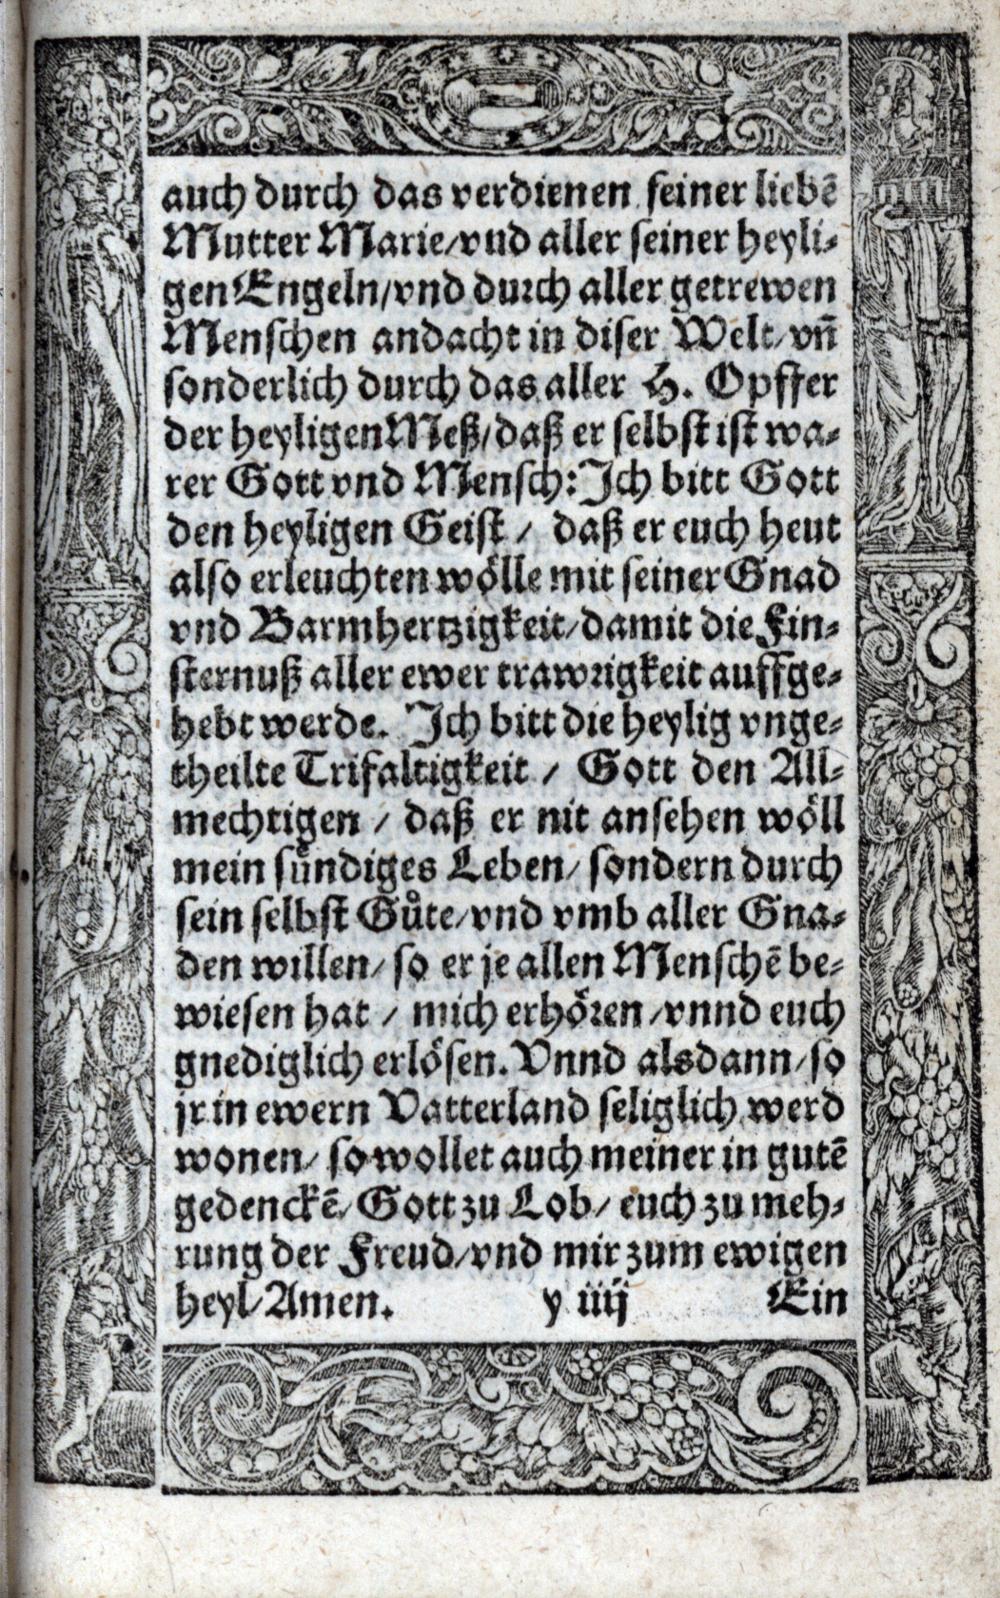 auch durch das verdienen seiner liebē
Mutter Marie/vnd aller seiner heyli-
gen Engeln/vnd durch aller getrewen
Menschen andacht in diser Welt/vñ
sonderlich durch das aller H. Opffer
der heyligen Meß/daß er selbst ist wa-
rer Gott vnd Mensch: Ich bitt Gott
den heyligen Geist / daß er euch heut
also erleuchten wölle mit seiner Gnad
vnd Barmhertzigkeit/damit die Fin-
sternuß aller ewer trawrigkeit auffge-
hebt werde. Ich bitt die heylig vnge-
theilte Trifaltigkeit / Gott den All-
mechtigen / daß er nit ansehen wöll
mein sündiges Leben/ sondern durch
sein selbst Gůte/vnd vmb aller Gna-
den willen/ so er je allen Menschē be-
wiesen hat / mich erhören /vnnd euch
gnediglich erlösen. Vnnd alsdann/so
jr in ewern Vatterland seliglich werd
wonen/ so wollet auch meiner in gutē
gedenckē/Gott zu Lob/ euch zu meh-
rung der Freud/vnd mir zum ewigen
heyl/Amen. y iiij Ein